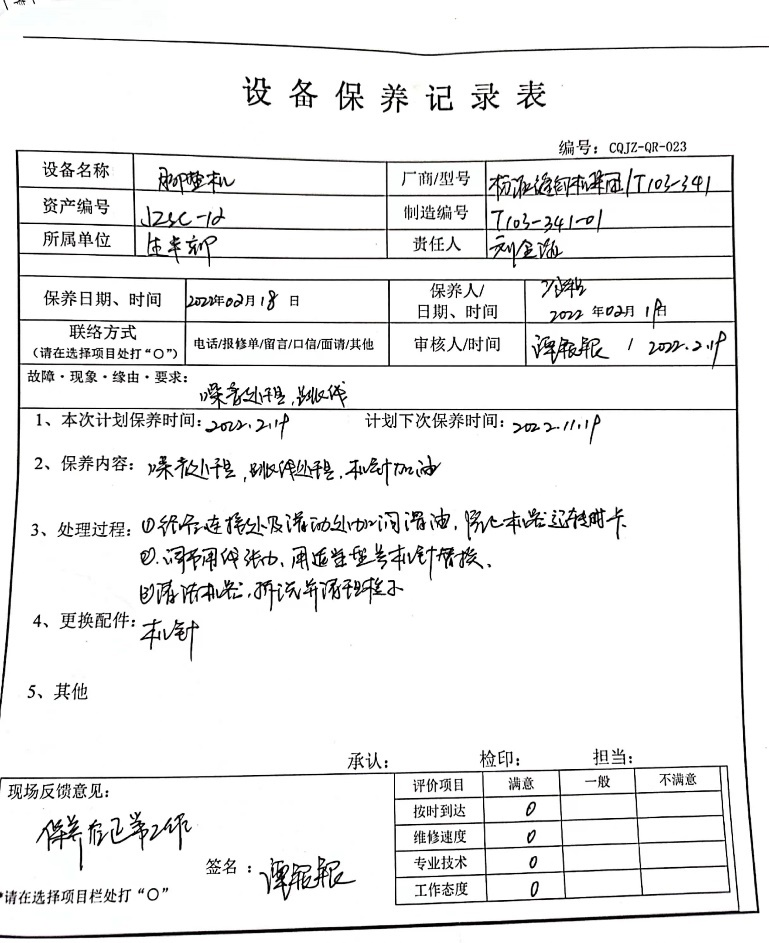 设备保养记录表
编号：CQJZ-QR-023
设备名称 机 厂商/型号 /T103-341
资产编号 JZSC-12 制造编号 T103-341-01
所属单位 生产部 责任人 刘金
保养日期、时间 2022年02月18日 保养人/日期、时间 2022年02月19日
联络方式（请在选择项目处打“O”） 电话/报修单/留言/口信/面请/其他 审核人/时间 谭银银 / 2022.2.19
故障·现象·缘由·要求：
噪音处理，跳线
1、本次计划保养时间：2022.2.19 计划下次保养时间：2022.11.19
2、保养内容：噪音处理，跳线处理，机针加油
3、处理过程：①给各连接处及滑动处加润滑油，防止机器运转时卡
②.调节用线张力，用适当型号机针替换、
③清洁机器，拆洗并清理
4、更换配件：机针
5、其他
承认： 检印： 担当：
现场反馈意见： 评价项目 满意 一般 不满意
按时到达 O
保养后已 工作 维修速度 O
签名： 谭银银 专业技术 O
*请在选择项目栏处打“O” 工作态度 O